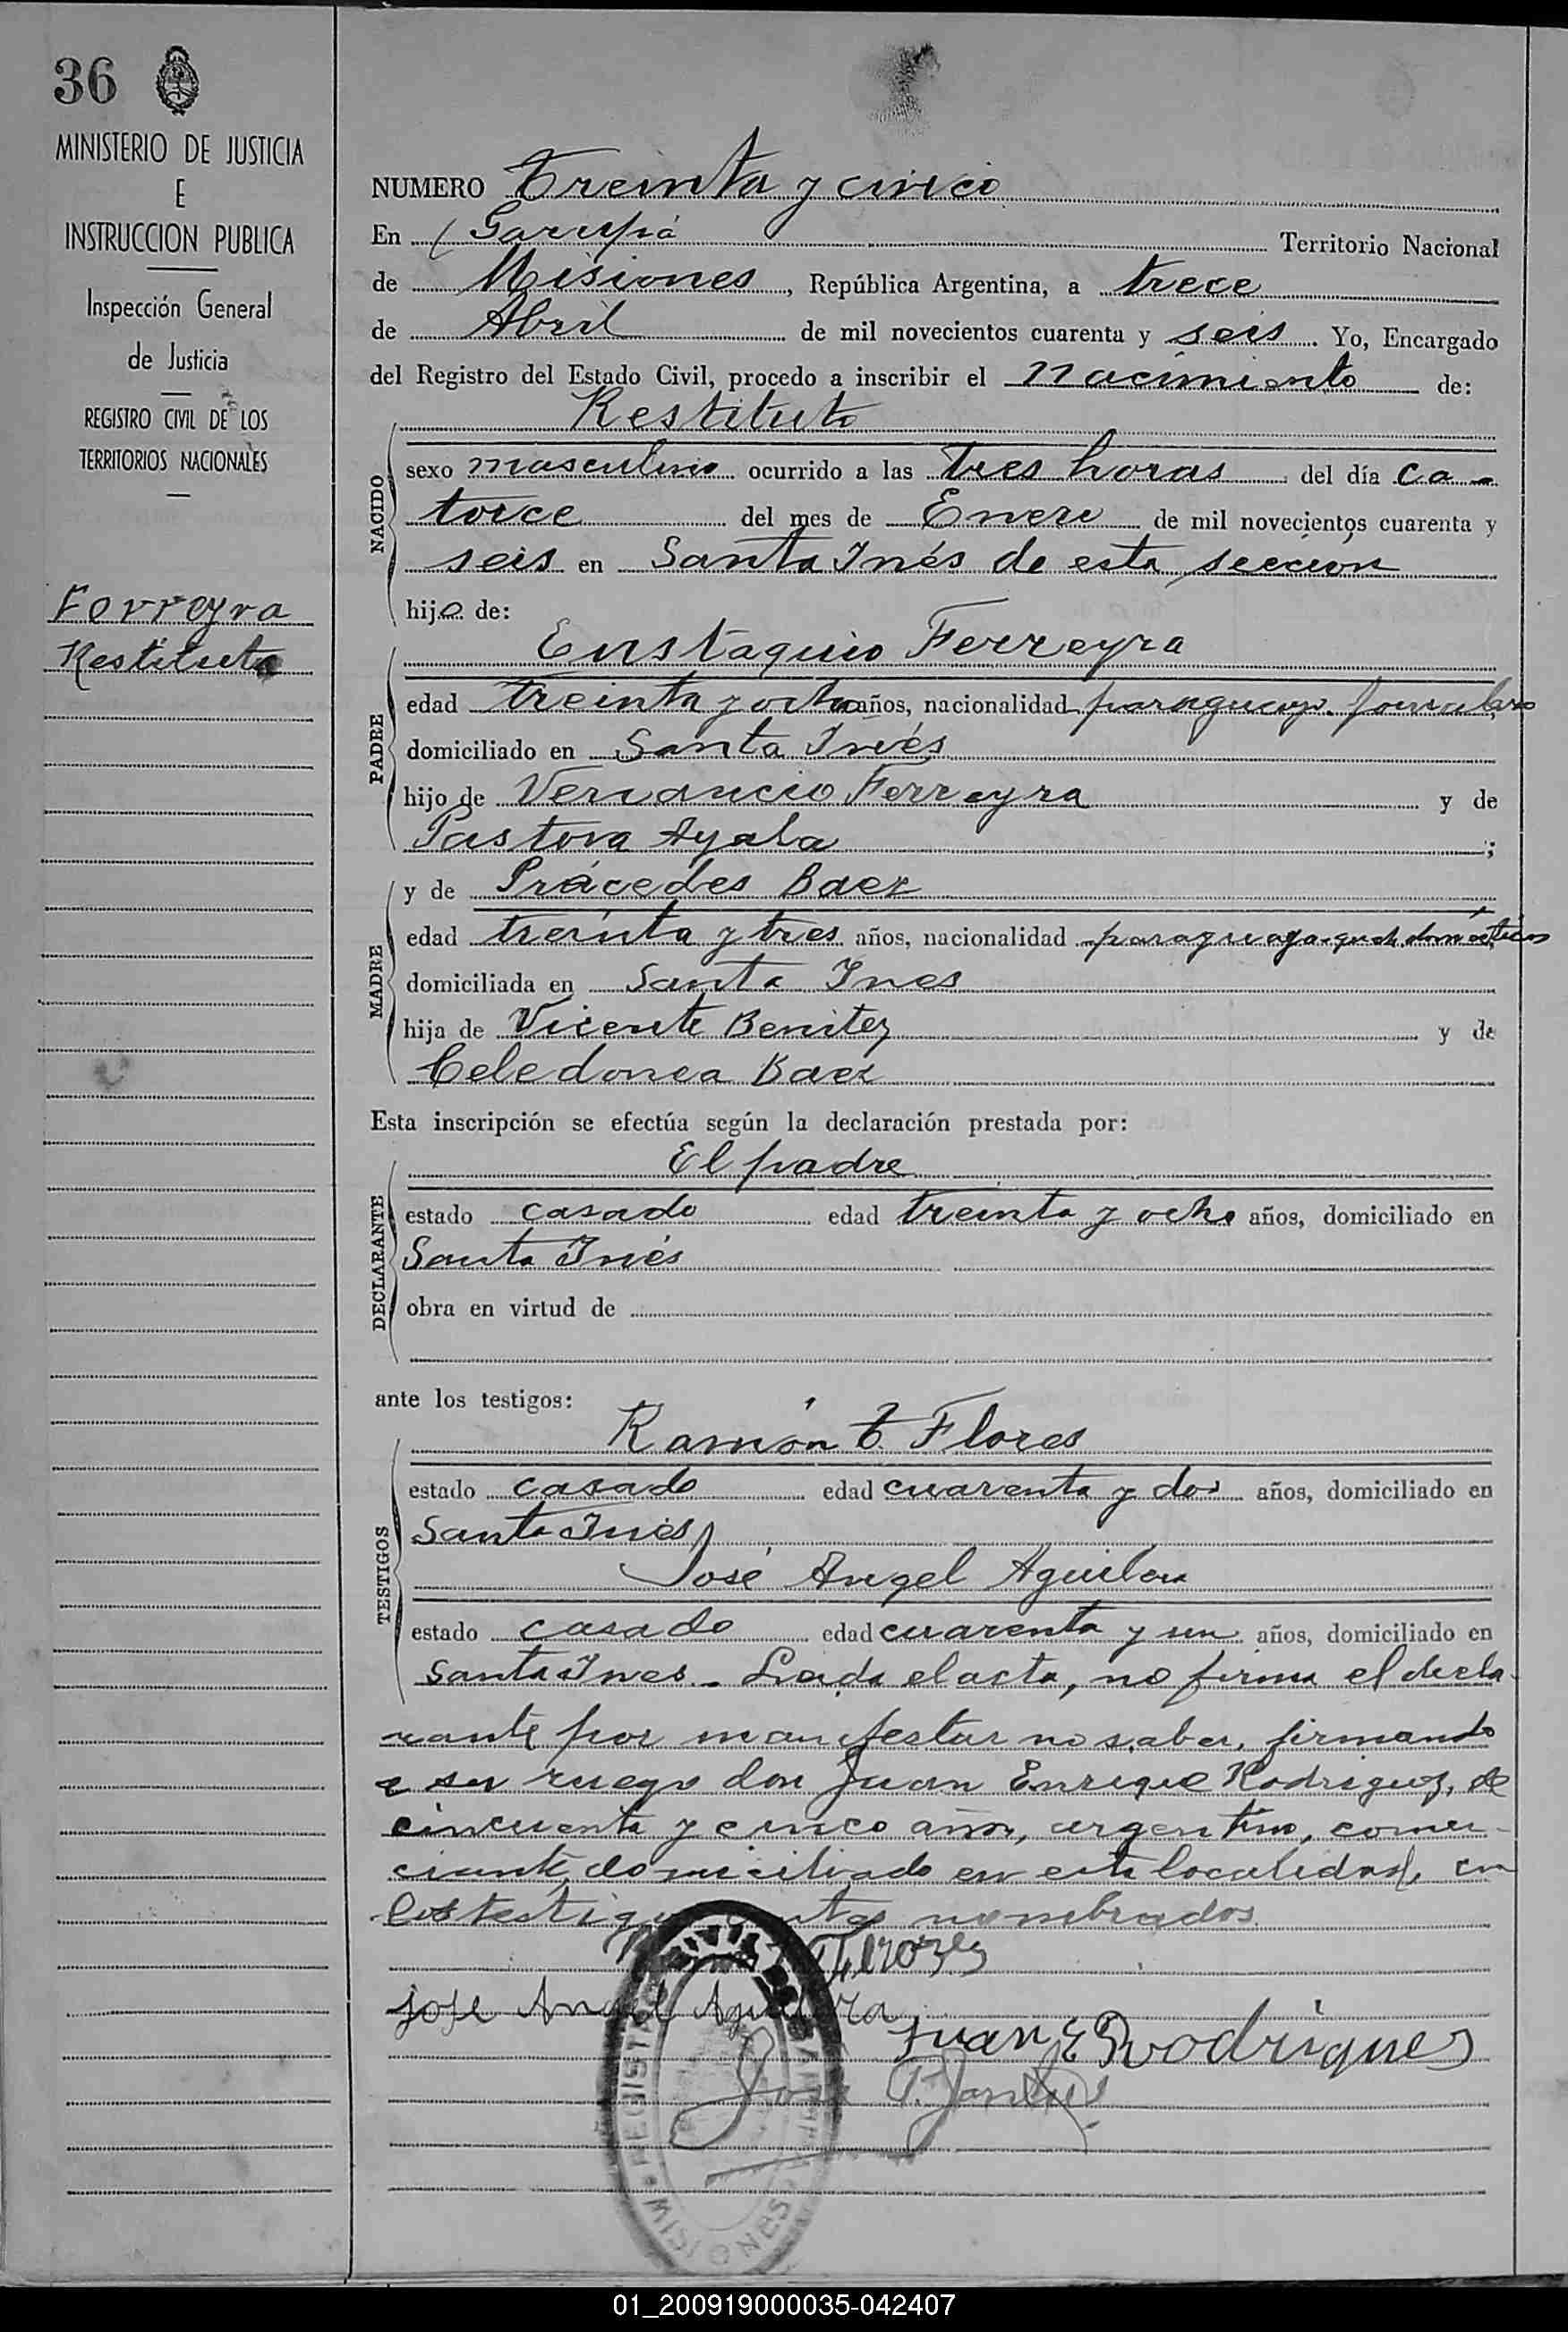 36
MINISTERIO DE JUSTICIA
E
INSTRUCCION PUBLICA
Inspección General
de Justicia
REGISTRO CIVIL DE LOS
TERRITORIOS NACIONALES
Ferreyra
Restituto
NUMERO Treinta y cinco
En Garupá Territorio Nacional
de Misiones, República Argentina, a trece
de Abril de mil novecientos cuarenta y seis. Yo, Encargado
del Registro del Estado Civil, procedo a inscribir el nacimiento de:
Restituto
NACIDO
sexo masculino ocurrido a las tres horas del día ca-
torce del mes de Enero de mil novecientos cuarenta y
seis en Santa Inés de esta sección
hijo de:
Eustaquio Ferreyra
PADRE
edad treinta y ocho años, nacionalidad paraguayo. jornalero
domiciliado en Santa Inés
hijo de Venancio Ferreyra y de
Pastora Ayala;
y de Prácedes Baez
MADRE
edad treinta y tres años, nacionalidad paraguaya-queh. domésticos
domiciliada en Santa Ines
hija de Vicente Benitez y de
Celedonea Baez
Esta inscripción se efectúa según la declaración prestada por:
El padre
DECLARANTE
estado casado edad treinta y ocho años, domiciliado en
Santa Inés
obra en virtud de
ante los testigos:
Ramón T. Flores
TESTIGOS
estado casado edad cuarenta y dos años, domiciliado en
Santa Inés
José Angel Aguilera
estado casado edad cuarenta y un años, domiciliado en
Santa Ines. Leida el acta, no firma el decla-
rante por manifestar no saber, firmando
a su ruego don Juan Enrique Rodriguez, de
cincuenta y cinco años, argentino, comer-
ciante, domiciliado en esta localidad, con
los testigos antes nombrados.
Flores
Jose Angel Aguilera
Juan E Rodrigues
REGISTRO CIVIL
MISIONES
01_200919000035-042407